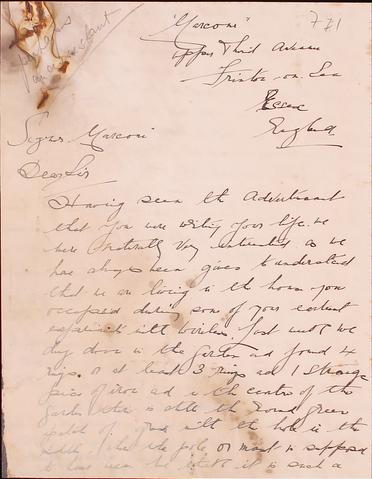 771
"Marconi"
Upper Third Avenue
Frinton-on-Sea
Essex
England
Signor Marconi
Dear Sir
Having seen the Advertisment
that you were writing your life. we
were naturally very interested as we
have always been given to understand
that we are living in the house you
occupied during some of your earliest
experiments with wireless. Last week we
dug down in the garden and found 4
rings, or at least 3 rings and 1 strange
piece of iron and in the centre of the
garden there is still the round green
patch of grass with the hole in the
middle, where the pole or mast is supposed
to have been the it is such a